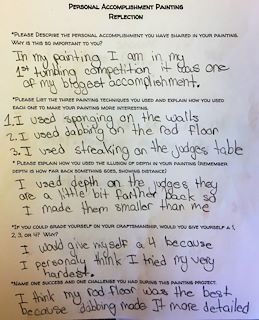 Personal Accomplishment Painting
Reflection
*Please describe the personal accomplishment you have shared in your painting.
Why is this so important to you?
In my painting I am in my
1st tumbling competition it was one
of my biggest accomplishment.
*Please list the three painting techniques you used and explain how you used
each one to make your painting more interesting.
1. I used sponging on the walls
2. I used dabbing on the rod floor
3. I used streaking on the judges table
* Please explain how you used the illusion of depth in your painting (remember
depth is how far back something goes, showing distance)
I used depth on the judges they
are a little bit farther back so
I made them smaller than me
*If you could grade yourself on your craftsmanship, would you give yourself a 1,
2, 3, or 4? Why?
I would give myself a 4 because
I personaly think I tried my very
hardest.
*Name one success and one challenge you had during this painting project.
I think my rod floor was the best
because dabbing made it more detailed